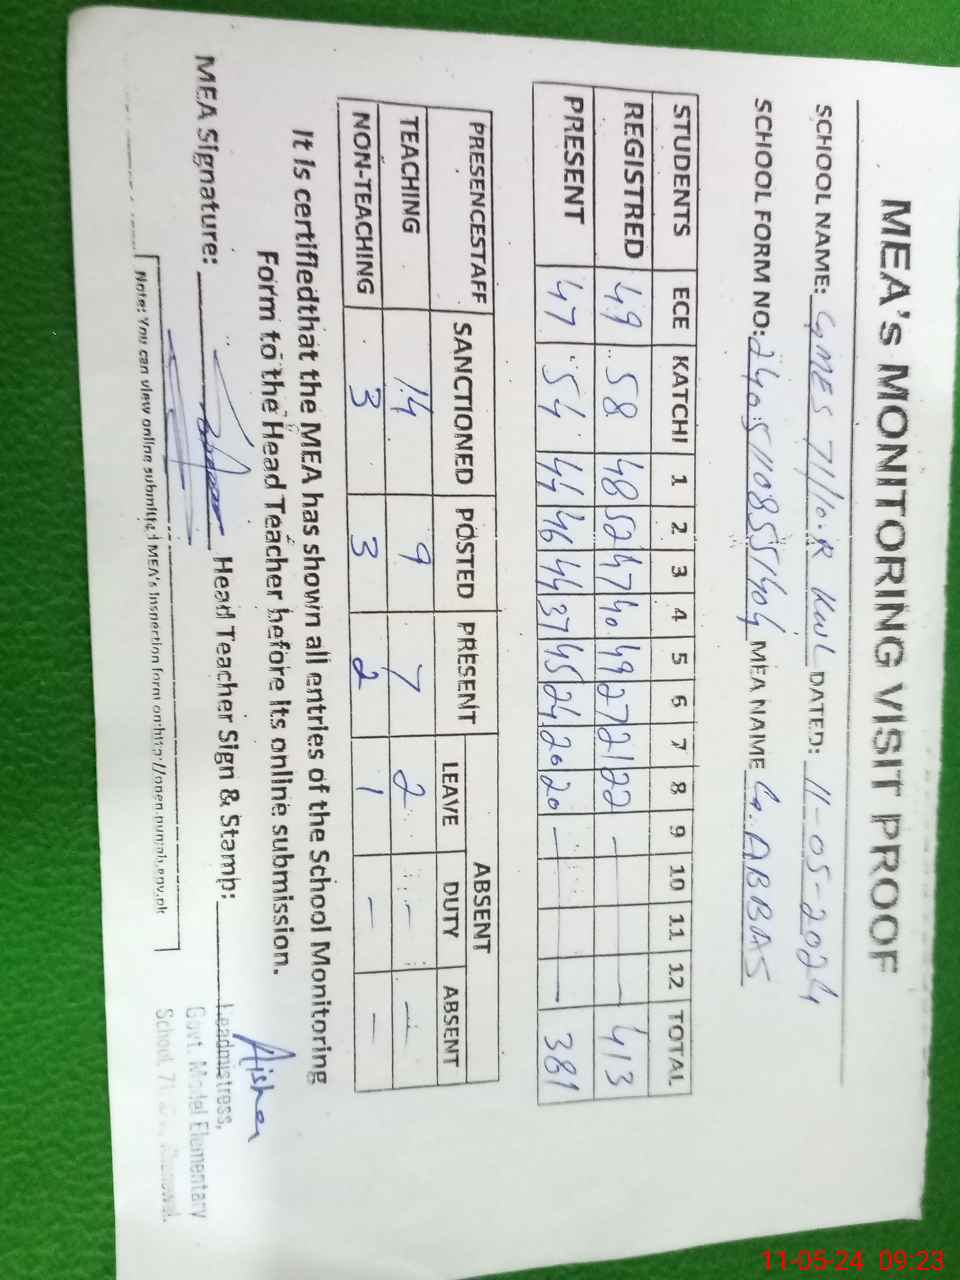 MEA's MONITORING VISIT PROOF
SCHOOL NAME: GMES 71/10.R KWL DATED: 11-05-2024
SCHOOL FORM NO: MEA NAME ABBAS
STUDENTS ECE KATCHI 1 2 3 4 5 6 7 8 9 10 11 12 TOTAL
REGISTRED 49 58 48 52 47 40 49 27 21 22 — 413
PRESENT 47 54 44 46 44 37 45 24 20 20 — 381
PRESENCESTAFF SANCTIONED POSTED PRESENT ABSENT
LEAVE DUTY ABSENT
TEACHING 14 9 7 2 — —
NON-TEACHING 3 3 2 1 — —
It is certifiedthat the MEA has shown all entries of the School Monitoring
Form to the Head Teacher before its online submission.
MEA Signature: Head Teacher Sign & Stamp: Aisha
Headmistress,
Govt. Model Elementary
School,
Note: You can view online submitted MEA's Inspection form on:http://open.punjab.gov.pk
11-05-24 09:23